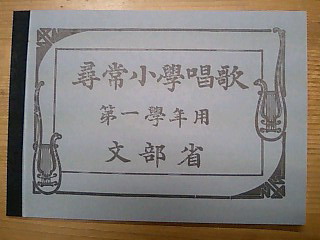 尋常小學唱歌
第一學年用
文部省